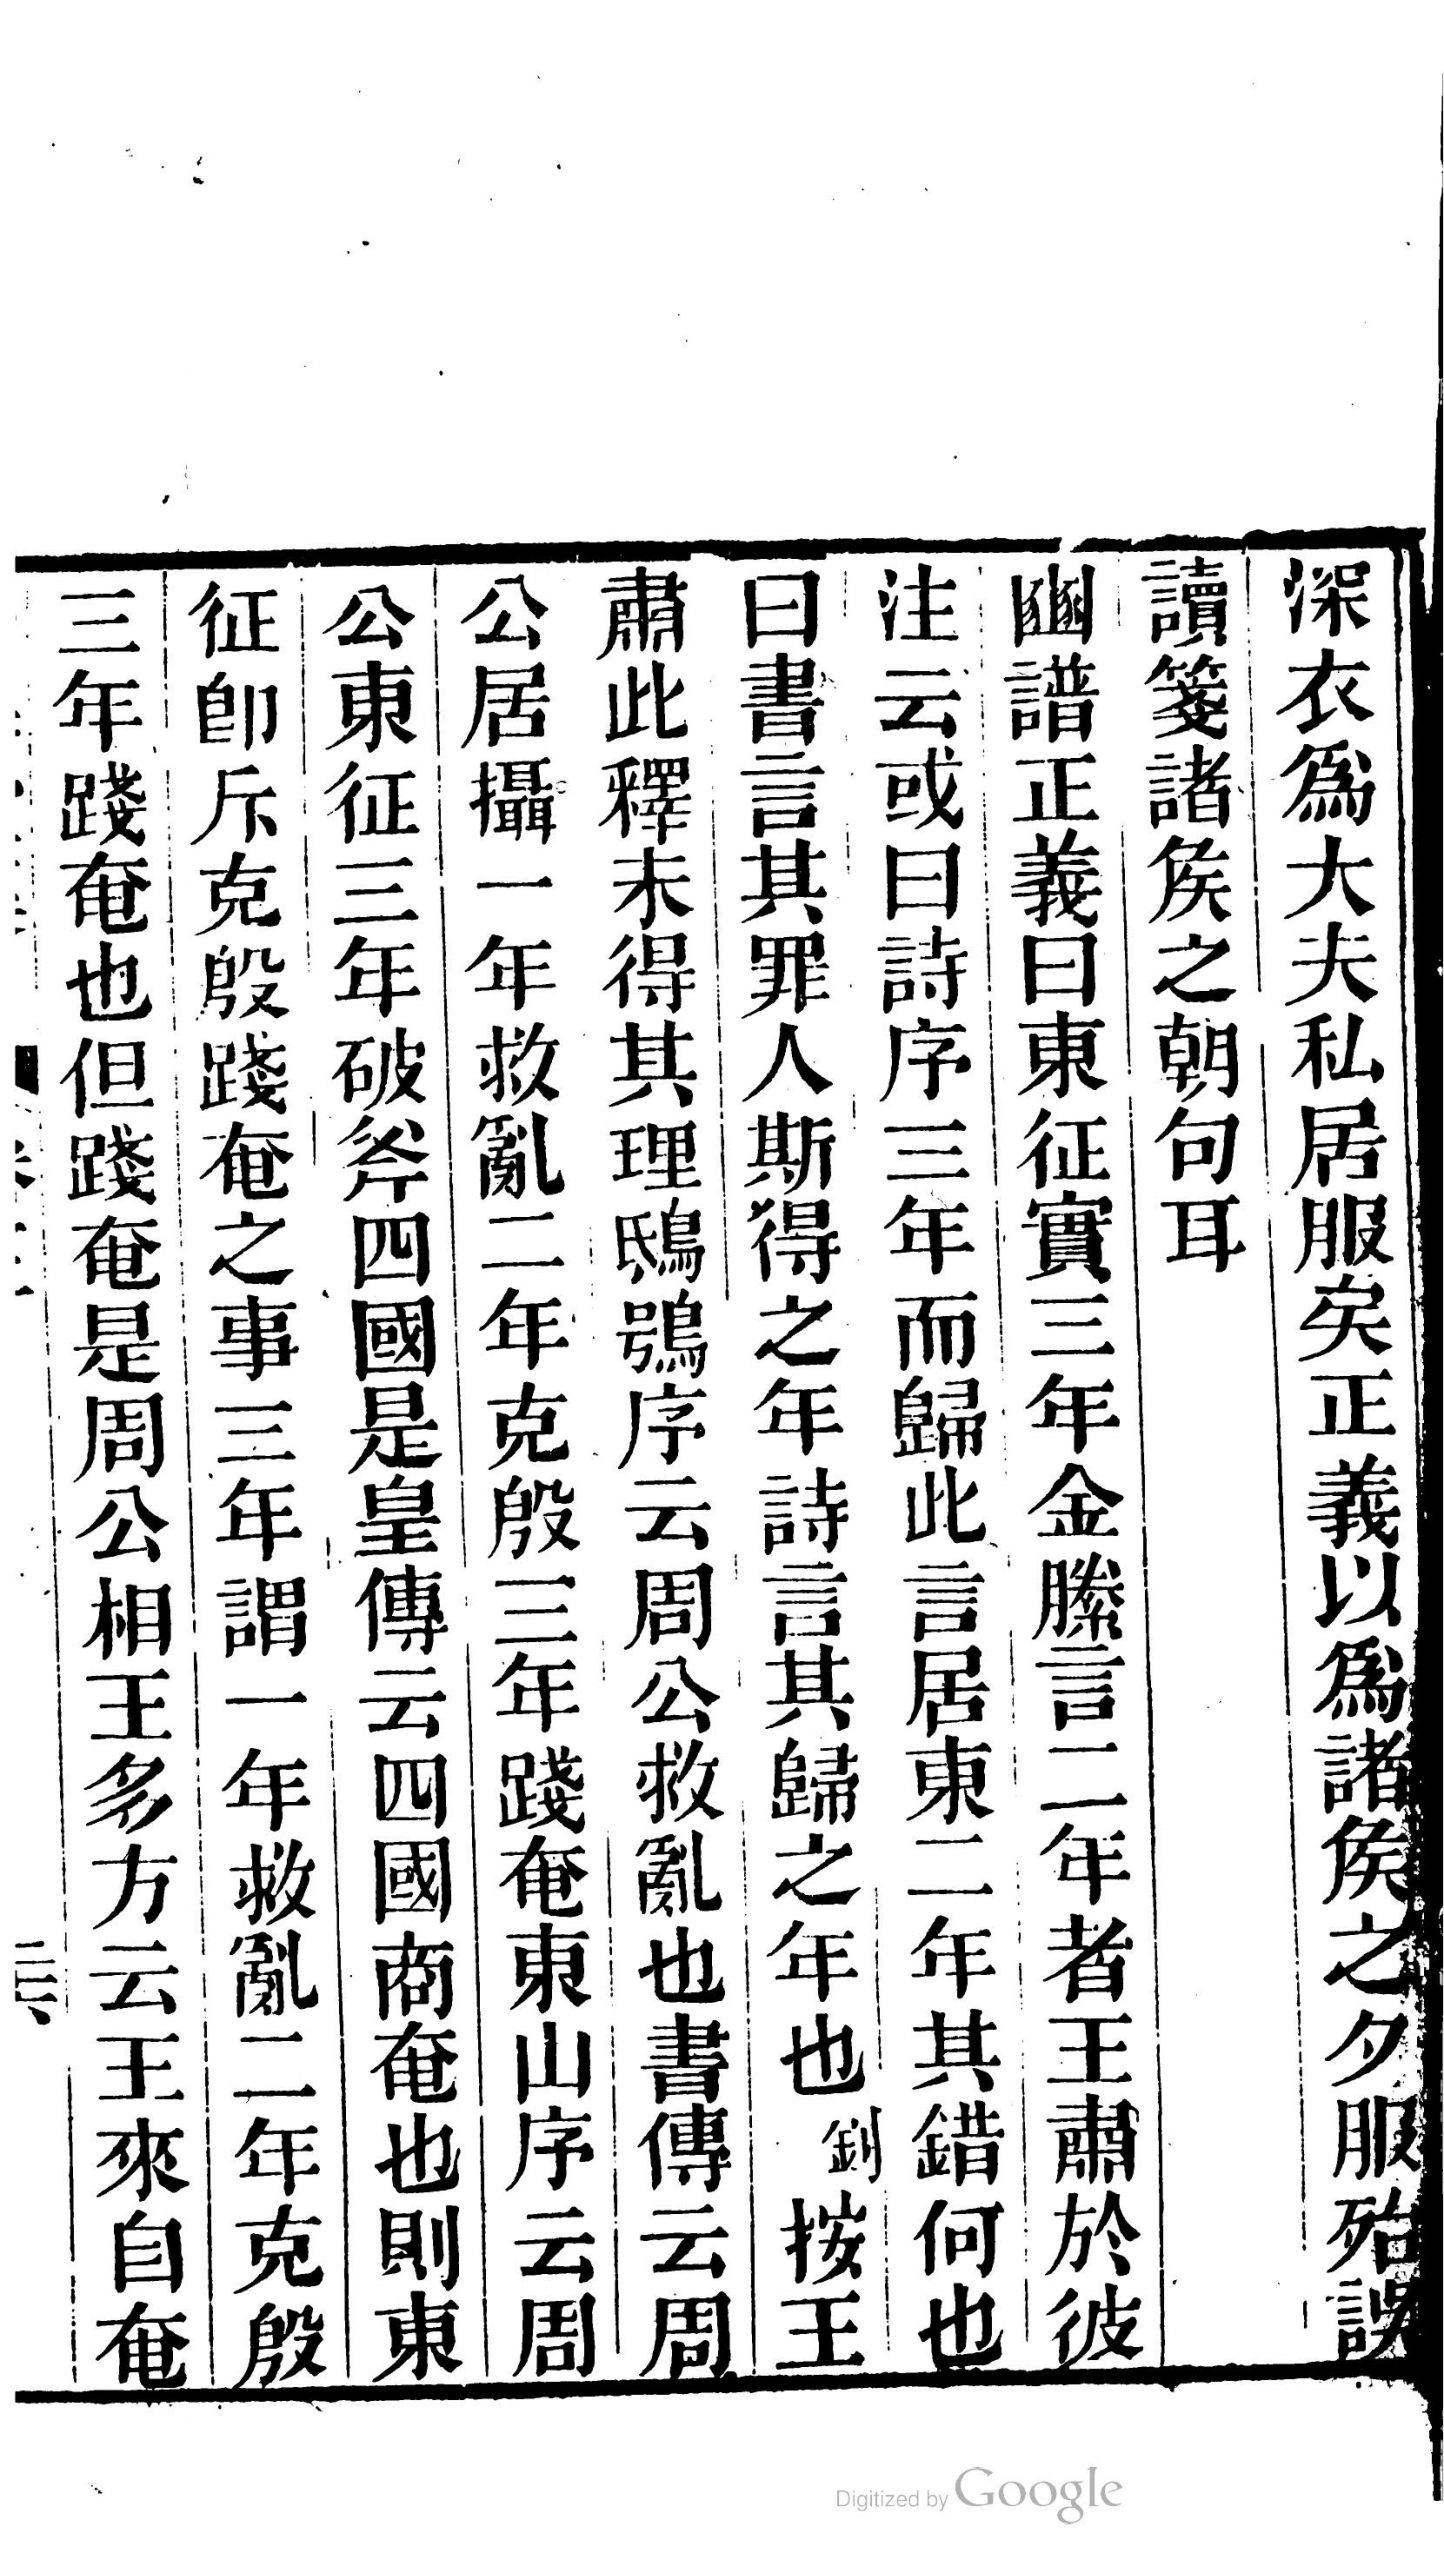 深衣爲大夫私居服矣正義以爲諸侯之夕服殆誤
讀箋諸侯之朝句耳
豳譜正義曰東征實三年金縢言二年者王肅於彼
注云或曰詩序三年而歸此言居東二年其錯何也
曰書言其罪人斯得之年詩言其歸之年也釗按王
肅此釋未得其理鴟鴞序云周公救亂也書傳云周
公居攝一年救亂二年克殷三年踐奄東山序云周
公東征三年破斧四國是皇傳云四國商奄也則東
征卽斥克殷踐奄之事三年謂一年救亂二年克殷
三年踐奄也但踐奄是周公相王多方云王來自奄
Digitized by Google